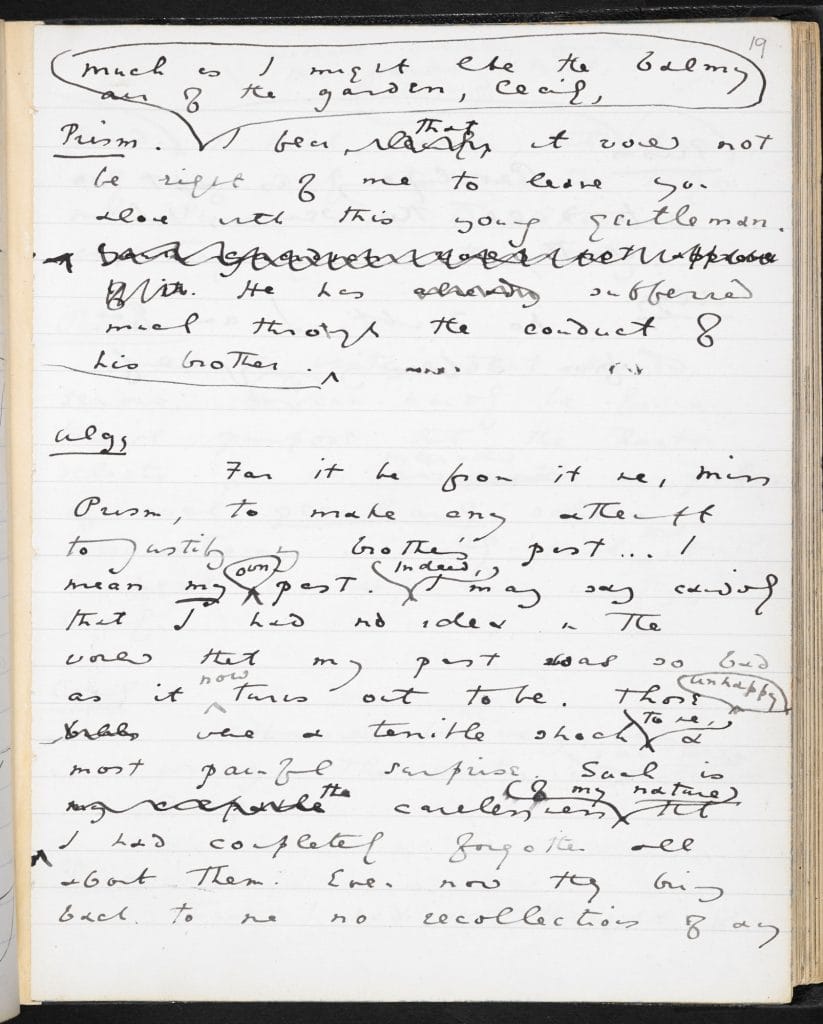 19
much as I might like the balmy
air of the garden, Cecily,
Prism. I fear that it would not
be right of me to leave you
alone with this young gentleman.
your guardian would not approve
of it. He has already suffered
much through the conduct of
his brother.
Algy
Far it be from it me, Miss
Prism, to make any attempt
to justify my brother's past... I
mean my own past. Indeed, I may say candidly
that I had no idea in the
world that my past was so bad
as it now turns out to be. Those unhappy
bills were a terrible shock to me, a
most painful surprise. Such is
my the carelessness of my nature that
I had completely forgotten all
about them. Even now they bring
back to me no recollections of any